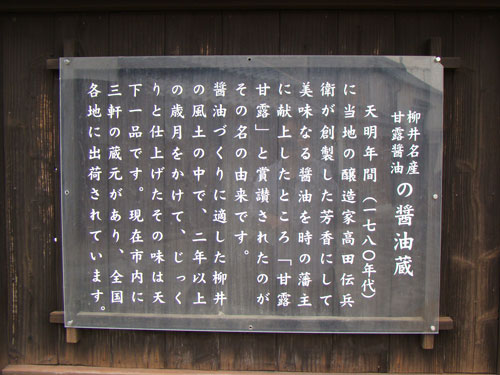 柳井名産
甘露醬油
の醬油蔵
天明年間(一七八〇年代)
に当地の醸造家高田伝兵
衛が創製した芳香にして
美味なる醬油を時の藩主
に献上したところ「甘露
甘露」と賞讃されたのが
その名の由来です。
醬油づくりに適した柳井
の風土の中で、二年以上
の歳月をかけて、じっく
りと仕上げたその味は天
下一品です。現在市内に
三軒の蔵元があり、全国
各地に出荷されています。